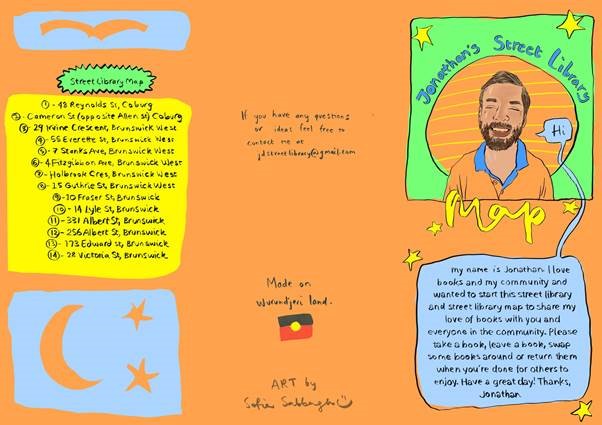 Street Library Map
1 - 48 Reynolds St, Coburg
2 - Cameron St (opposite Allen st) Coburg
3 - 29 Irvine Crescent, Brunswick West
4 - 55 Everette St, Brunswick West
5 - 7 Shanks Ave, Brunswick West
6 - 4 Fitzgibbon Ave, Brunswick West
7 - Holbrook Cres, Brunswick West
8 - 15 Guthrie St, Brunswick West
9 - 10 Fraser St, Brunswick
10 - 14 Lyle St, Brunswick
11 - 331 Albert St, Brunswick
12 - 256 Albert St, Brunswick
13 - 173 Edward St, Brunswick
14 - 28 Victoria St, Brunswick
If you have any questions
or ideas feel free to
contact me at
jdstreetlibrary@gmail.com
Made on
Wurundjeri land.
ART by
Sofia Sabbagh
Jonathan's Street Library
Hi
Map
my name is Jonathan. I love
books and my community and
wanted to start this street library
and street library map to share my
love of books with you and
everyone in the community. Please
take a book, leave a book, swap
some books around or return them
when you're done for others to
enjoy. Have a great day! Thanks,
Jonathan